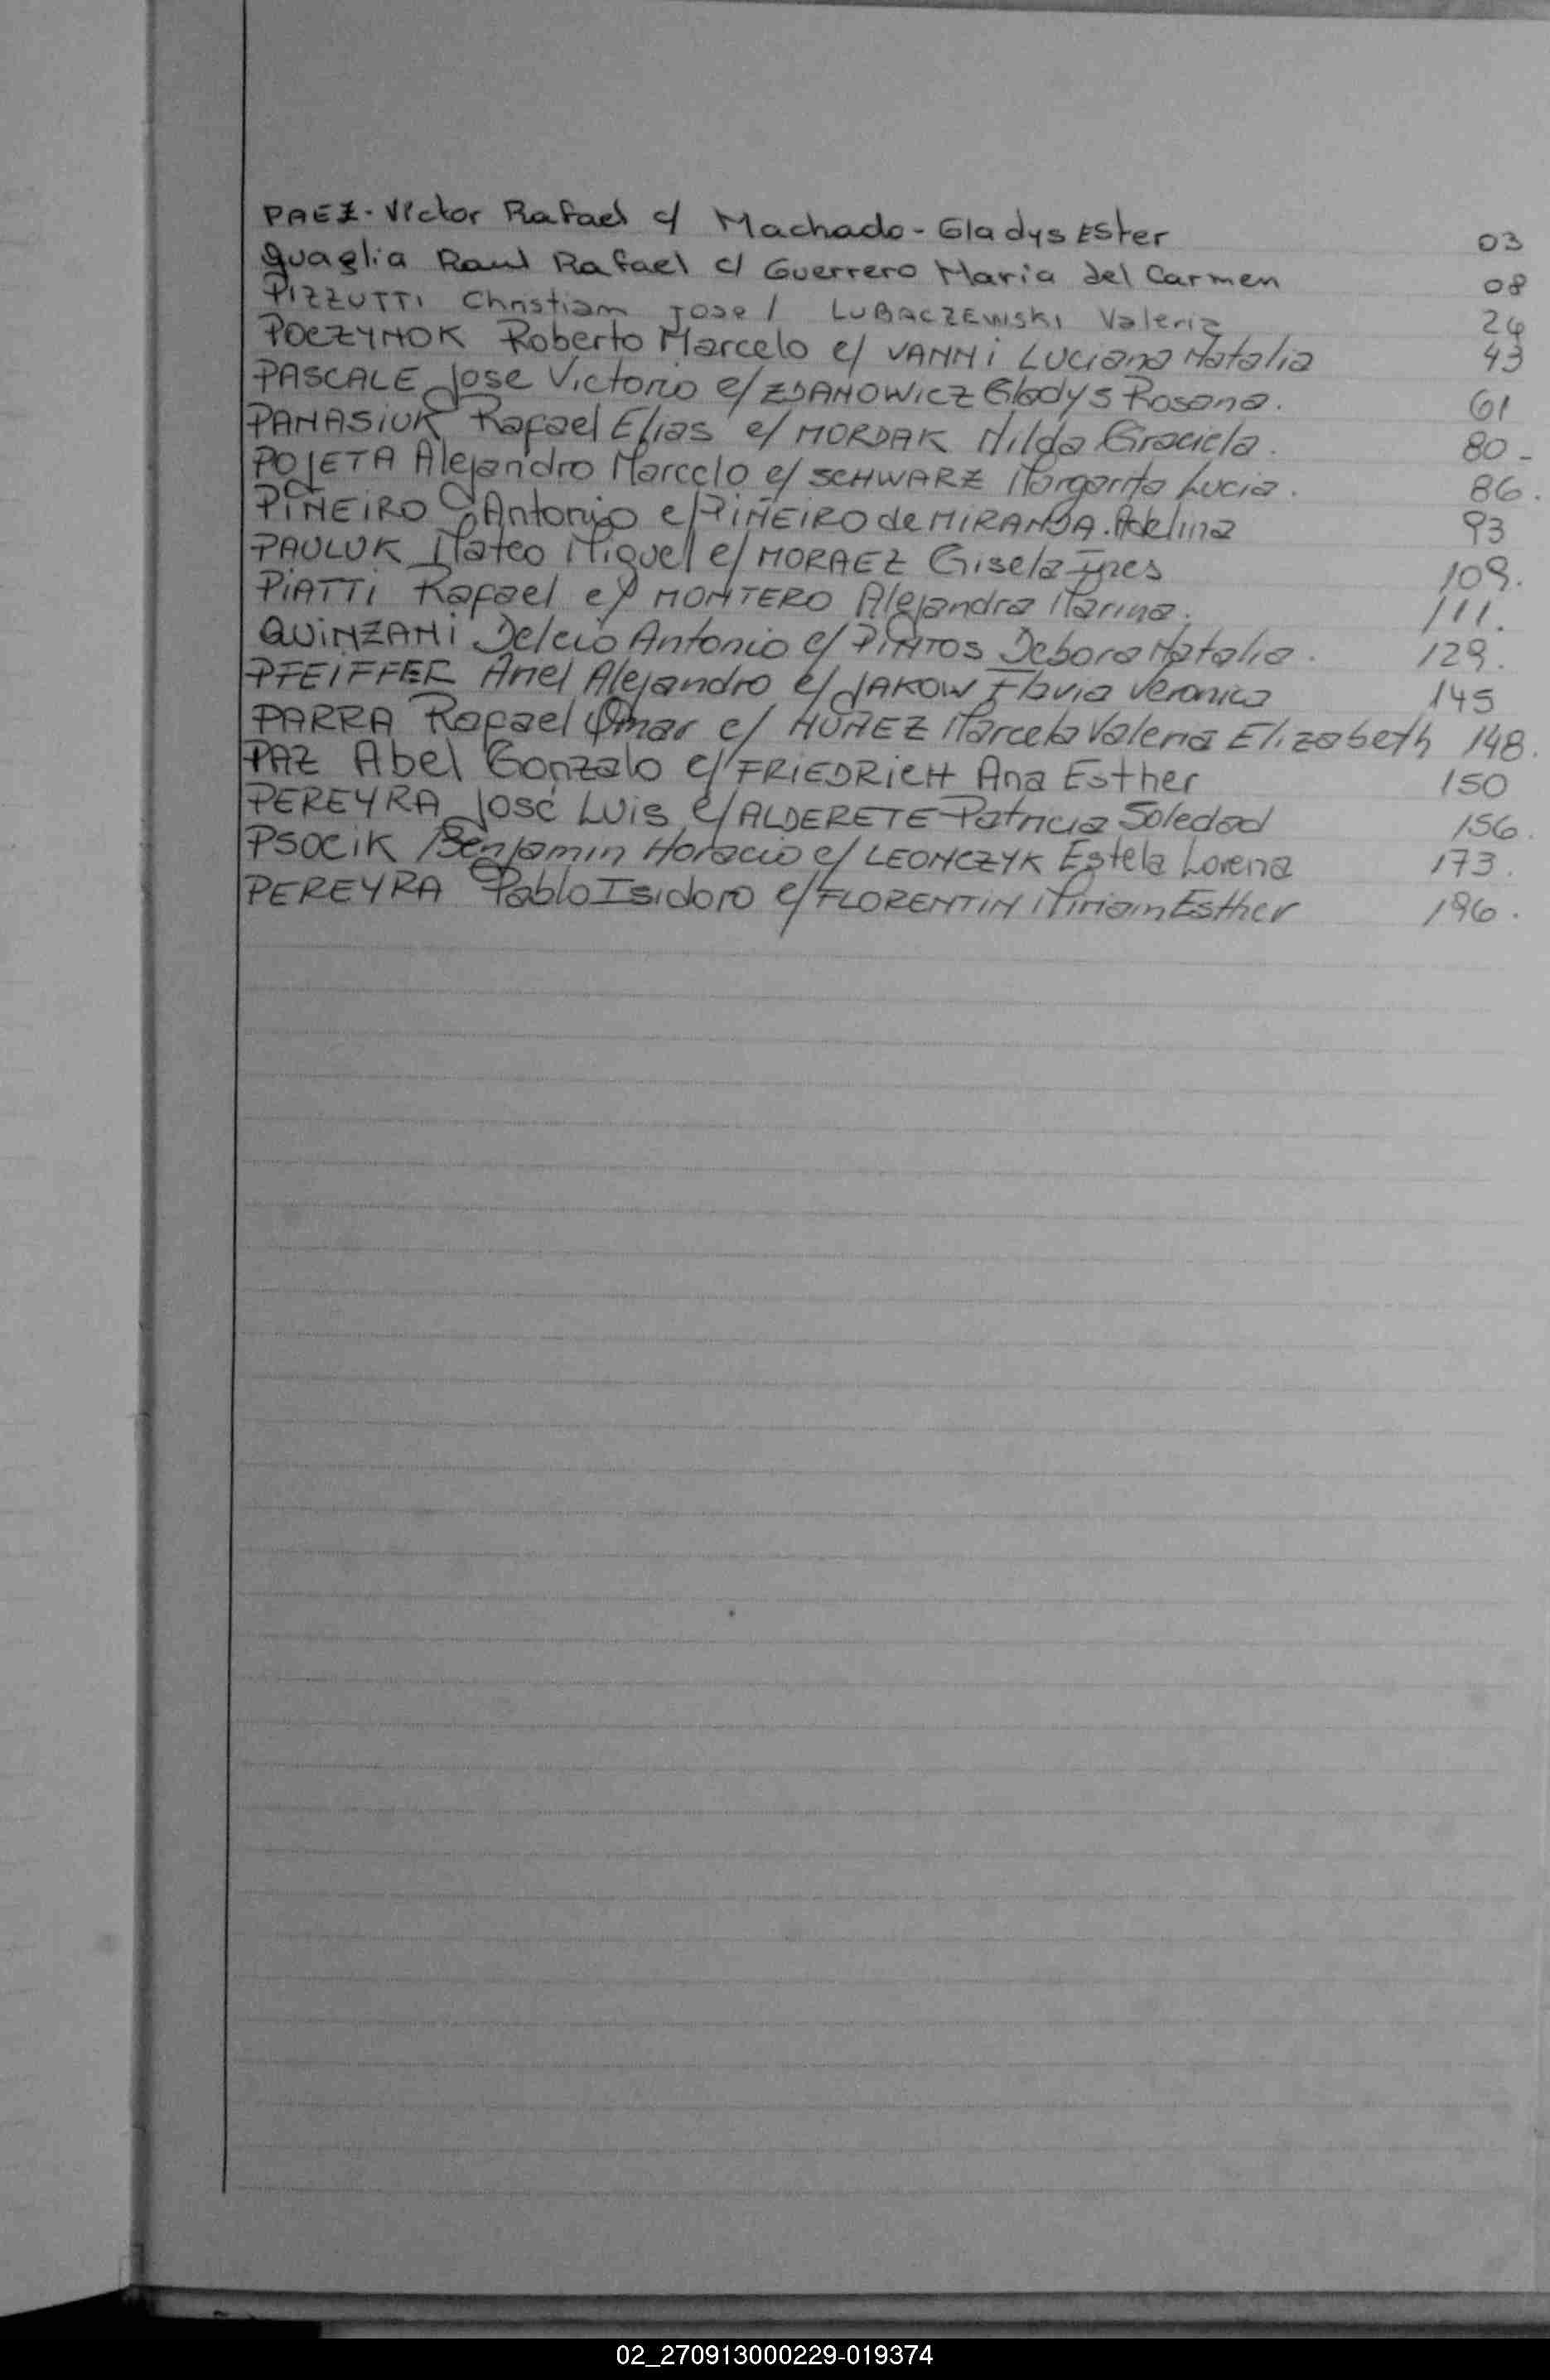 PAEZ-Victor Rafael c/ Machado-Gladys Ester 03
Quaglia Raul Rafael c/ Guerrero Maria del Carmen 08
PIZZUTTI Christiam Jose / LUBACZEWSKI Valeria 24
POCZYNOK Roberto Marcelo c/ VANNi Luciana Natalia 43
PASCALE Jose Victorio c/ ZDANOWicz Gladys Rosana. 61
PANASiUK Rafael Elias c/ MORDAK Nilda Graciela. 80-
POJETA Alejandro Marcelo c/ SCHWARZ Margarita Lucia. 86.
PIÑEIRO Antonio c/ PIÑEIRO de MIRANDA. Adelina 93
PAULUK Mateo Miguel c/ MORAEZ Gisela Ines 109.
PiATTi Rafael c/ MONTERO Alejandra Marina. 111.
QUiNZANi Delcio Antonio c/ PiNTOS Debora Natalia. 129.
PFEiFFER Ariel Alejandro c/ JAKOW Flavia Veronica 145
PARRA Rafael Omar c/ NUÑEZ Marcela Valeria Elizabeth 148.
PAZ Abel Gonzalo c/ FRIEDRICH Ana Esther 150
PEREYRA José Luis c/ ALDERETE Patricia Soledad 156.
PSOCiK Benjamin Horacio c/ LEONCZYK Estela Lorena 173.
PEREYRA Pablo Isidoro c/ FLORENTIN Miriam Esther 196.
02_270913000229-019374